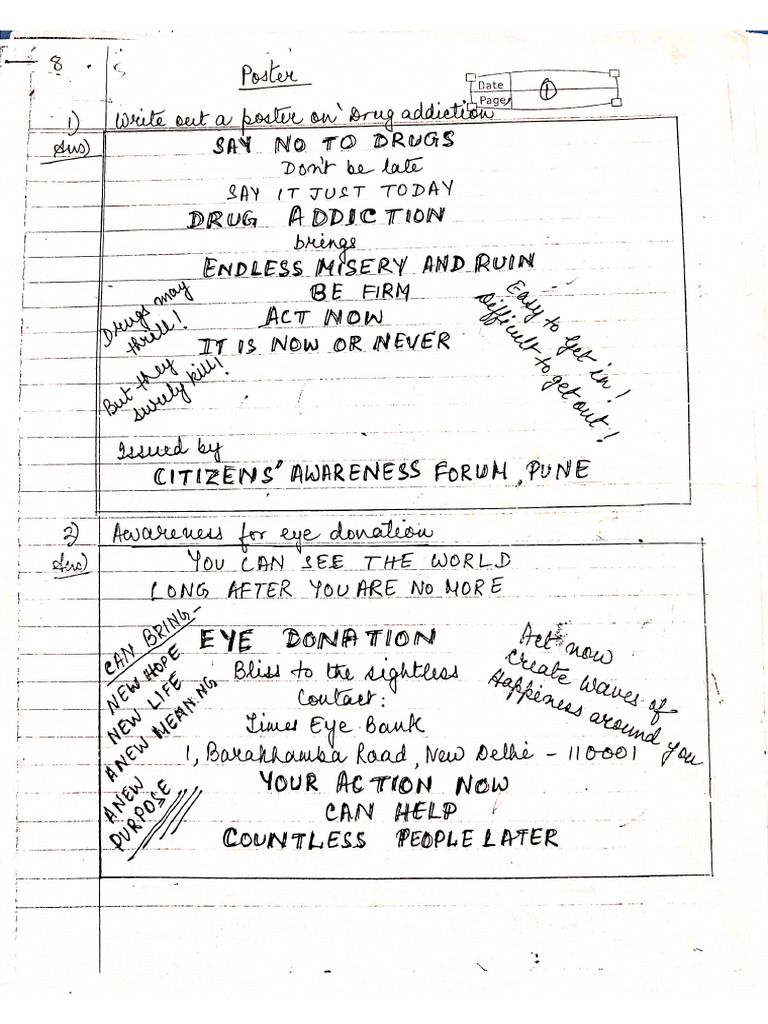 8.
Poster
Date
Page 1
1) Write out a poster on Drug addiction
Ans)
SAY NO TO DRUGS
Don't be late
SAY IT JUST TODAY
DRUG ADDICTION
brings
ENDLESS MISERY AND RUIN
BE FIRM
ACT NOW
IT IS NOW OR NEVER
Drugs may
thrill!
But they
surely kill!
Easy to get in!
Difficult to get out!
Issued by
CITIZENS' AWARENESS FORUM, PUNE
2) Awareness for eye donation
Ans)
YOU CAN SEE THE WORLD
LONG AFTER YOU ARE NO MORE
EYE DONATION
Bliss to the sightless
Contact:
Times Eye Bank
1, Barakhamba Road, New Delhi - 110001
YOUR ACTION NOW
CAN HELP
COUNTLESS PEOPLE LATER
CAN BRING-
NEW HOPE
NEW LIFE
A NEW MEANING
A NEW
PURPOSE
Act now
Create waves of
Happiness around you